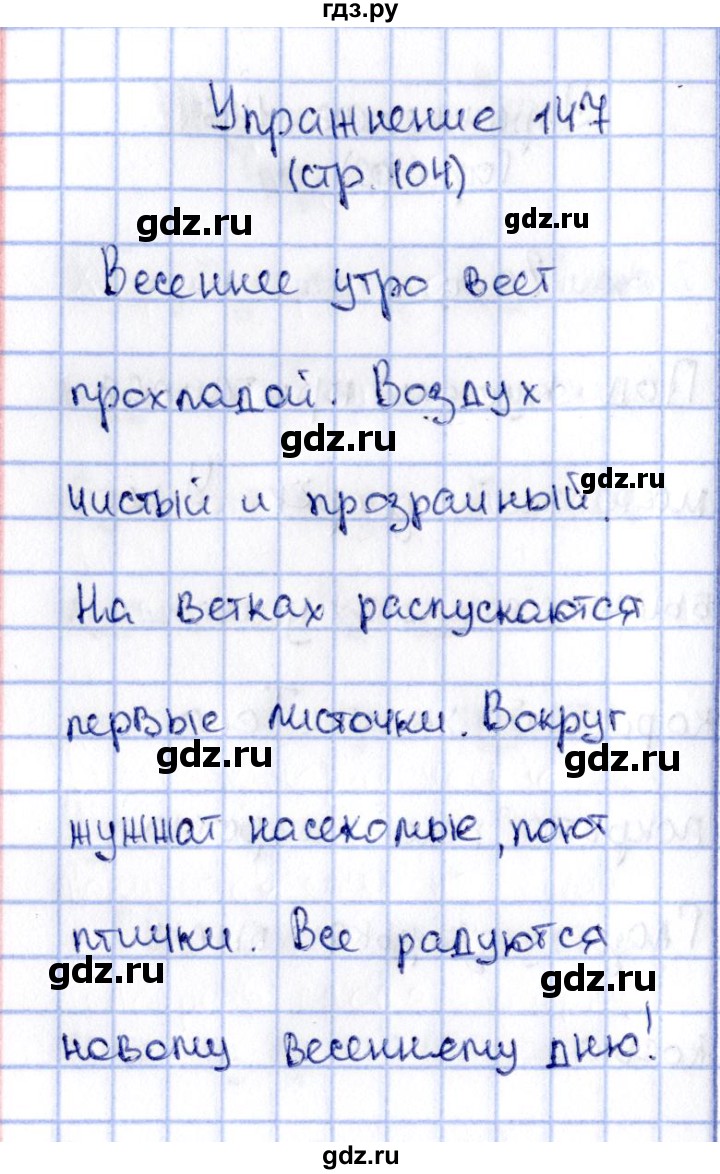 гдз.ру
Упражнение 147
(стр. 104)
gdz.ru gdz.ru
Весеннее утро веет
прохладой. Воздух
gdz.ru
чистый и прозрачный.
gdz.ru
На ветках распускаются
первые листочки. Вокруг
gdz.ru gdz.ru
жужжат насекомые, поют
птички. Все радуются
gdz.ru gdz.ru
новому весеннему дню!
gdz.ru